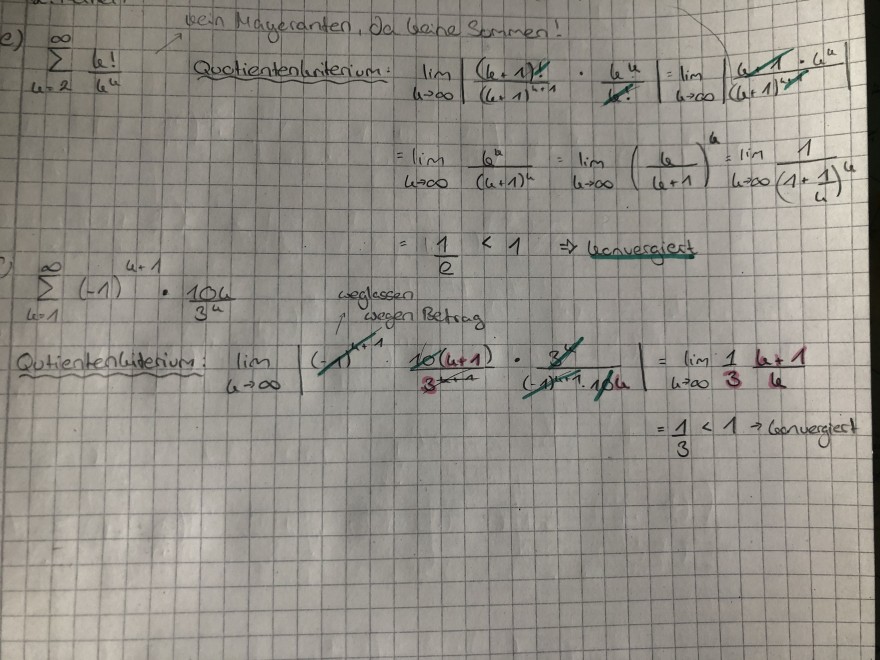 kein Mayoranten, da keine Summen!
e) ∞ ∑ k=2 k!/k^k Quotientenkriterium: lim k→∞ | (k+1)!/(k+1)^(k+1) · k^k/k! | = lim k→∞ | k+1 · k^k / (k+1)^(k+1) |
= lim k→∞ k^k/(k+1)^k = lim k→∞ (k/(k+1))^k = lim k→∞ 1/(1+1/k)^k
= 1/e < 1 ⇒ konvergiert
∞ ∑ k=1 (-1)^(k+1) · 10k/3^k
weglassen
wegen Betrag
Qutientenkiterium: lim k→∞ | (-1)^(k+1) · 10(k+1)/3^(k+1) · 3^k/((-1)^(k+1) · 10k) | = lim k→∞ 1/3 (k+1)/k
= 1/3 < 1 → konvergiert